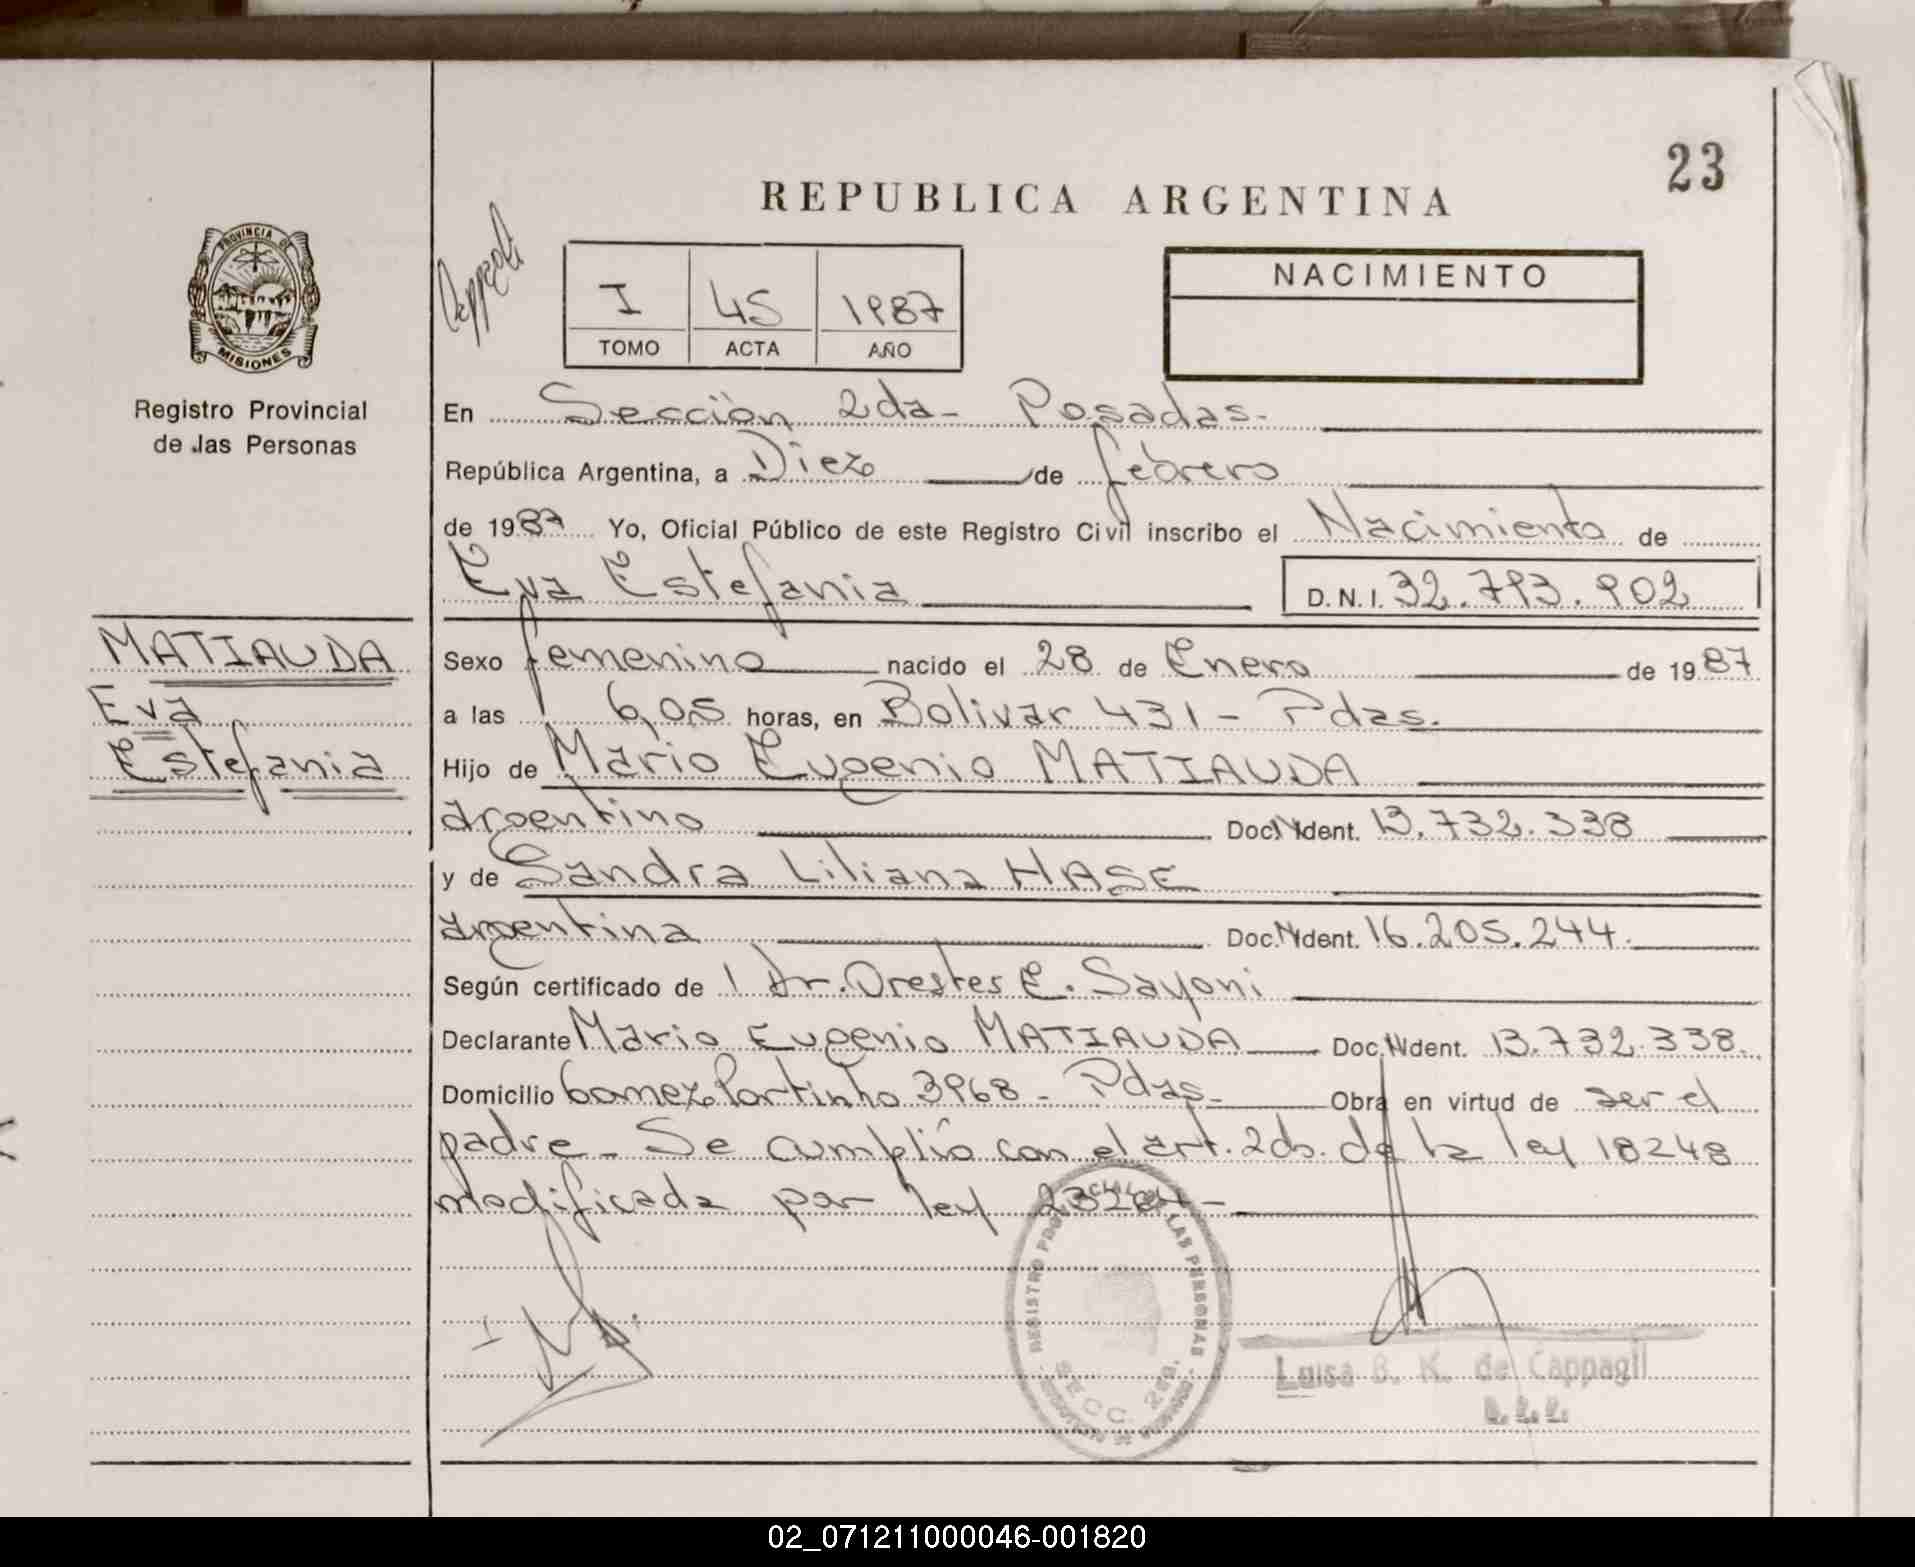 23
REPUBLICA ARGENTINA
PROVINCIA DE
MISIONES
Registro Provincial
de las Personas
I 45 1987
TOMO ACTA AÑO
NACIMIENTO
En Sección 2da- Posadas.
República Argentina, a Diez de febrero
de 1987 Yo, Oficial Público de este Registro Civil inscribo el Nacimiento de
Eva Estefania D.N.I. 32.793.902
MATIAUDA
Eva
Estefania
Sexo femenino nacido el 28 de Enero de 1987
a las 6,05 horas, en Bolivar 431 - Pdas.
Hijo de Mario Eugenio MATIAUDA
argentino Doc. Ident. 13.732.338
y de Sandra Liliana HASE
argentina Doc. Ident. 16.205.244.
Según certificado de 1 Dr. Orestes E. Sayoni
Declarante Mario Eugenio MATIAUDA Doc. Ident. 13.732.338.
Domicilio Gomez Portinho 3968 - Pdas.- Obra en virtud de ser el
padre.- Se cumplió con el art. 2do. de la ley 18248
modificada por ley
REGISTRO PROVINCIAL DE LAS PERSONAS
SECC. 2da.
Luisa B. K. de Cappagli
02_071211000046-001820